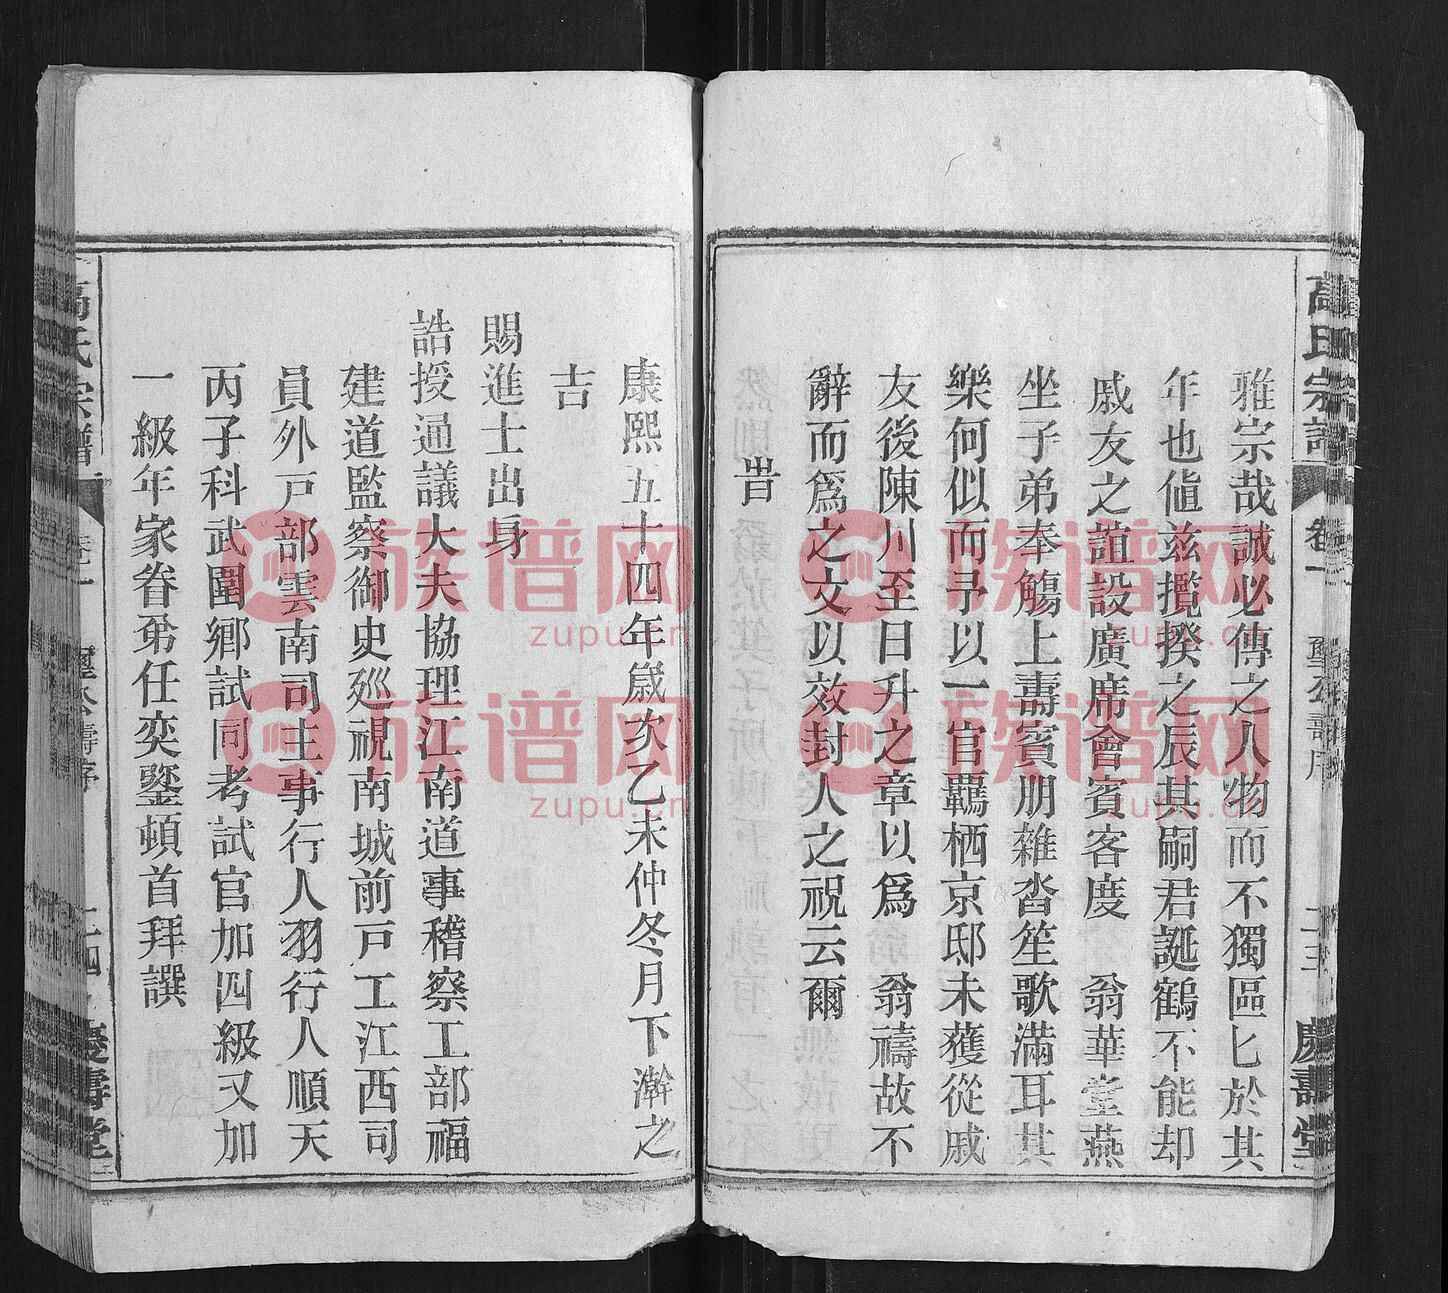 高氏宗譜 卷一 聖公壽序 二十三 慶壽堂
雅宗哉誠必傳之人物而不獨區匕於其
年也値兹攬揆之辰其嗣君誕鶴不能却
戚友之誼設廣席會賓客度 翁華堂燕
坐子弟奉觴上壽賓朋雜沓笙歌滿耳其
樂何似而予以一官羈栖京邸未獲從戚
友後陳川至日升之章以爲 翁禱故不
辭而爲之文以效封人之祝云爾
旹
康熙五十四年歲次乙未仲冬月下澣之
吉
賜進士出身
誥授通議大夫協理江南道事稽察工部福
建道監察御史廵視南城前戶工江西司
員外戸部雲南司主事行人羽行人順天
丙子科武闈鄉試同考試官加四級又加
一級年家眷弟任奕鑋頓首拜譔
高氏宗譜 卷一 聖公壽序 二十四 慶壽堂
族谱网
zupu.cn
族谱网
zupu.cn
族谱网
zupu.cn
族谱网
zupu.cn